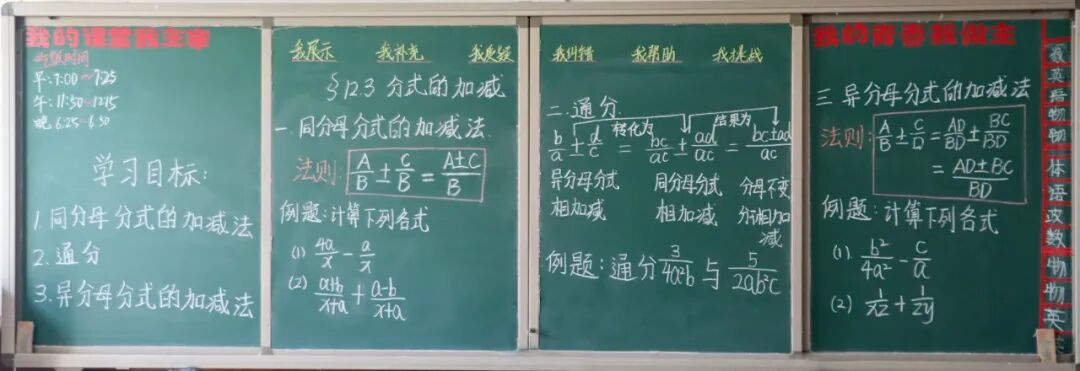 我的课堂我主宰
吃饭时间
早:7:00～7:25
午:11:50～12:15
晚 6:25～6:50
学习目标:
1.同分母分式的加减法
2.通分
3.异分母分式的加减法
我展示 我补充 我质疑
§12.3 分式的加减
一.同分母分式的加减法.
法则: A/B ± C/B = A±C/B
例题:计算下列各式
(1) 4a/x - a/x
(2) a+b/x+a + a-b/x+a
我纠错 我帮助 我挑战
二.通分.
转化为 结果为
b/a ± d/c = bc/ac ± ad/ac = bc±ad/ac
异分母分式 同分母分式 分母不变
相加减 相加减 分子相加
减
例题:通分 3/4a²b 与 5/2ab²c
我的青春我做主
三 异分母分式的加减法
法则: A/B ± C/D = AD/BD ± BC/BD
= AD±BC/BD
例题:计算下列各式
(1). b²/4a² - c/a
(2) 1/xz + 1/zy
数
英
语
物
物
体
语
政
数
物
物
英